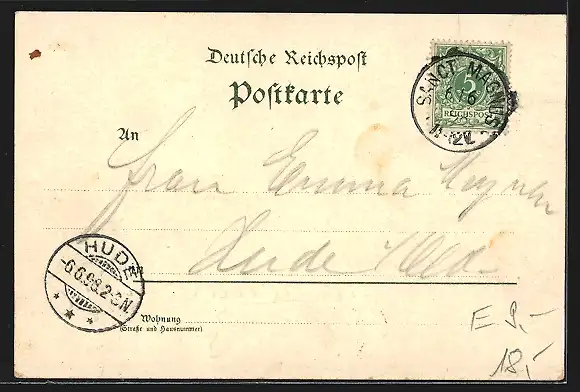 Deutsche Reichspost
Postkarte
SANCT MAGNUS
5
REICHSPOST
An
Frau Emma Meyer
Hude i/Old.
HUDE
-6.6.98.2-3N
Wohnung
(Straße und Hausnummer)
E 9,-
18,-